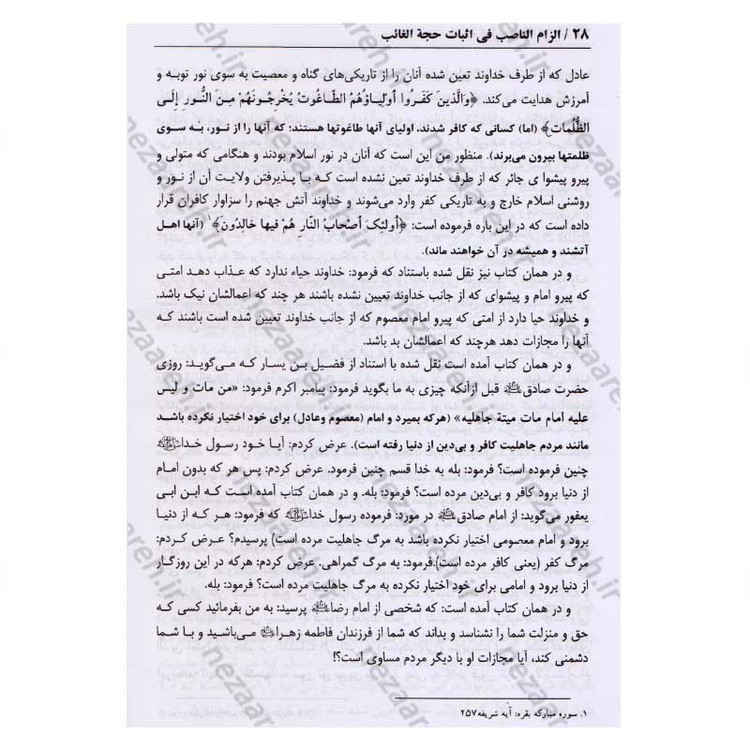 ۲۸ / الزام الناصب فی اثبات حجة الغائب
عادل که از طرف خداوند تعین شده آنان را از تاریکی‌های گناه و معصیت به سوی نور توبه و
آمرزش هدایت می‌کند. ﴿وَالَّذینَ کَفَرُوا أولیاؤهُمُ الطّاغُوتُ یُخْرِجُونَهُمْ مِنَ النُّورِ إلَی
الظُّلُماتِ﴾ (اما) کسانی که کافر شدند، اولیای آنها طاغوتها هستند؛ که آنها را از نور، به سوی
ظلمتها بیرون می‌برند). منظور من این است که آنان در نور اسلام بودند و هنگامی که متولی و
پیرو پیشوا ی جائر که از طرف خداوند تعین نشده است که با پذیرفتن ولایت آن از نور و
روشنی اسلام خارج و به تاریکی کفر وارد می‌شوند و خداوند آتش جهنم را سزاوار کافران قرار
داده است که در این باره فرموده است: ﴿أولئِکَ أصْحابُ النّارِ هُمْ فیها خالِدُونَ﴾۱ (آنها اهل
آتشند و همیشه در آن خواهند ماند).
و در همان کتاب نیز نقل شده باستناد که فرمود: خداوند حیاء ندارد که عذاب دهد امتی
که پیرو امام و پیشوای که از جانب خداوند تعیین نشده باشند هر چند که اعمالشان نیک باشد.
و خداوند حیا دارد از امتی که پیرو امام معصوم که از جانب خداوند تعیین شده است باشند که
آنها را مجازات دهد هرچند که اعمالشان بد باشد.
و در همان کتاب آمده است نقل شده با استناد از فضیل بن یسار که می‌گوید: روزی
حضرت صادق قبل ازآنکه چیزی به ما بگوید فرمود: پیامبر اکرم فرمود: «من مات و لیس
علیه امام مات میتة جاهلیه» (هرکه بمیرد و امام (معصوم وعادل) برای خود اختیار نکرده باشد
مانند مردم جاهلیت کافر و بی‌دین از دنیا رفته است). عرض کردم: آیا خود رسول خدا
چنین فرموده است؟ فرمود: بله به خدا قسم چنین فرمود. عرض کردم: پس هر که بدون امام
از دنیا برود کافر و بی‌دین مرده است؟ فرمود: بله. و در همان کتاب آمده است که ابن ابی
یعفور می‌گوید: از امام صادق در مورد: فرموده رسول خدا که فرمود: هر که از دنیا
برود و امام معصومی اختیار نکرده باشد به مرگ جاهلیت مرده است) پرسیدم؟ عرض کردم:
مرگ کفر (یعنی کافر مرده است).فرمود: به مرگ گمراهی. عرض کردم: هرکه در این روزگار
از دنیا برود و امامی برای خود اختیار نکرده به مرگ جاهلیت مرده است؟ فرمود: بله.
و در همان کتاب آمده است: که شخصی از امام رضا پرسید: به من بفرمائید کسی که
حق و منزلت شما را نشناسد و بداند که شما از فرزندان فاطمه زهرا می‌باشید و با شما
دشمنی کند، آیا مجازات او با دیگر مردم مساوی است؟!
۱. سوره مبارکه بقره: آیه شریفه۲۵۷
nezaareh.ir